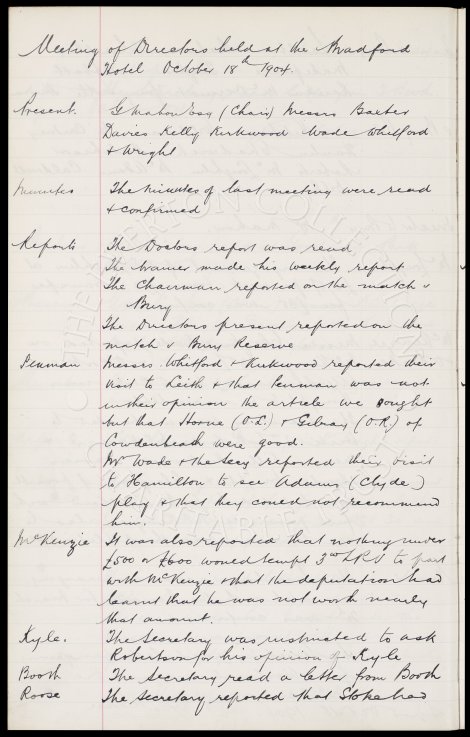 Meeting of Directors held at the Bradford
Hotel October 18th 1904.
Present. G Mahon Esq (Chair) Messrs Baxter
Davies Kelly Kirkwood Wade Whitford
& Wright
Minutes The minutes of last meeting were read
& confirmed
Reports The Doctors report was read
The trainer made his weekly report
The Chairman reported on the match v
Bury
The Directors present reported on the
match v Bury Reserve
Penman Messrs Whitford & Kirkwood reported their
visit to Leith & that Penman was not
in their opinion the article we sought
but that Horne (O.L.) & Gilray (O.R.) of
Cowdenbeath were good.
Mr Wade & the Secy reported their visit
to Hamilton to see Adams (Clyde)
play & that they could not recommend
him.
McKenzie It was also reported that nothing under
£500 or £600 would tempt 3rd L.R.V. to part
with McKenzie & that the deputation had
learnt that he was not worth nearly
that amount.
Kyle. The Secretary was instructed to ask
Robertson for his opinion of Kyle
Booth The Secretary read a letter from Booth
Roose The Secretary reported that Stoke had
THE EVERTON COLLECTION
CHARITABLE TRUST